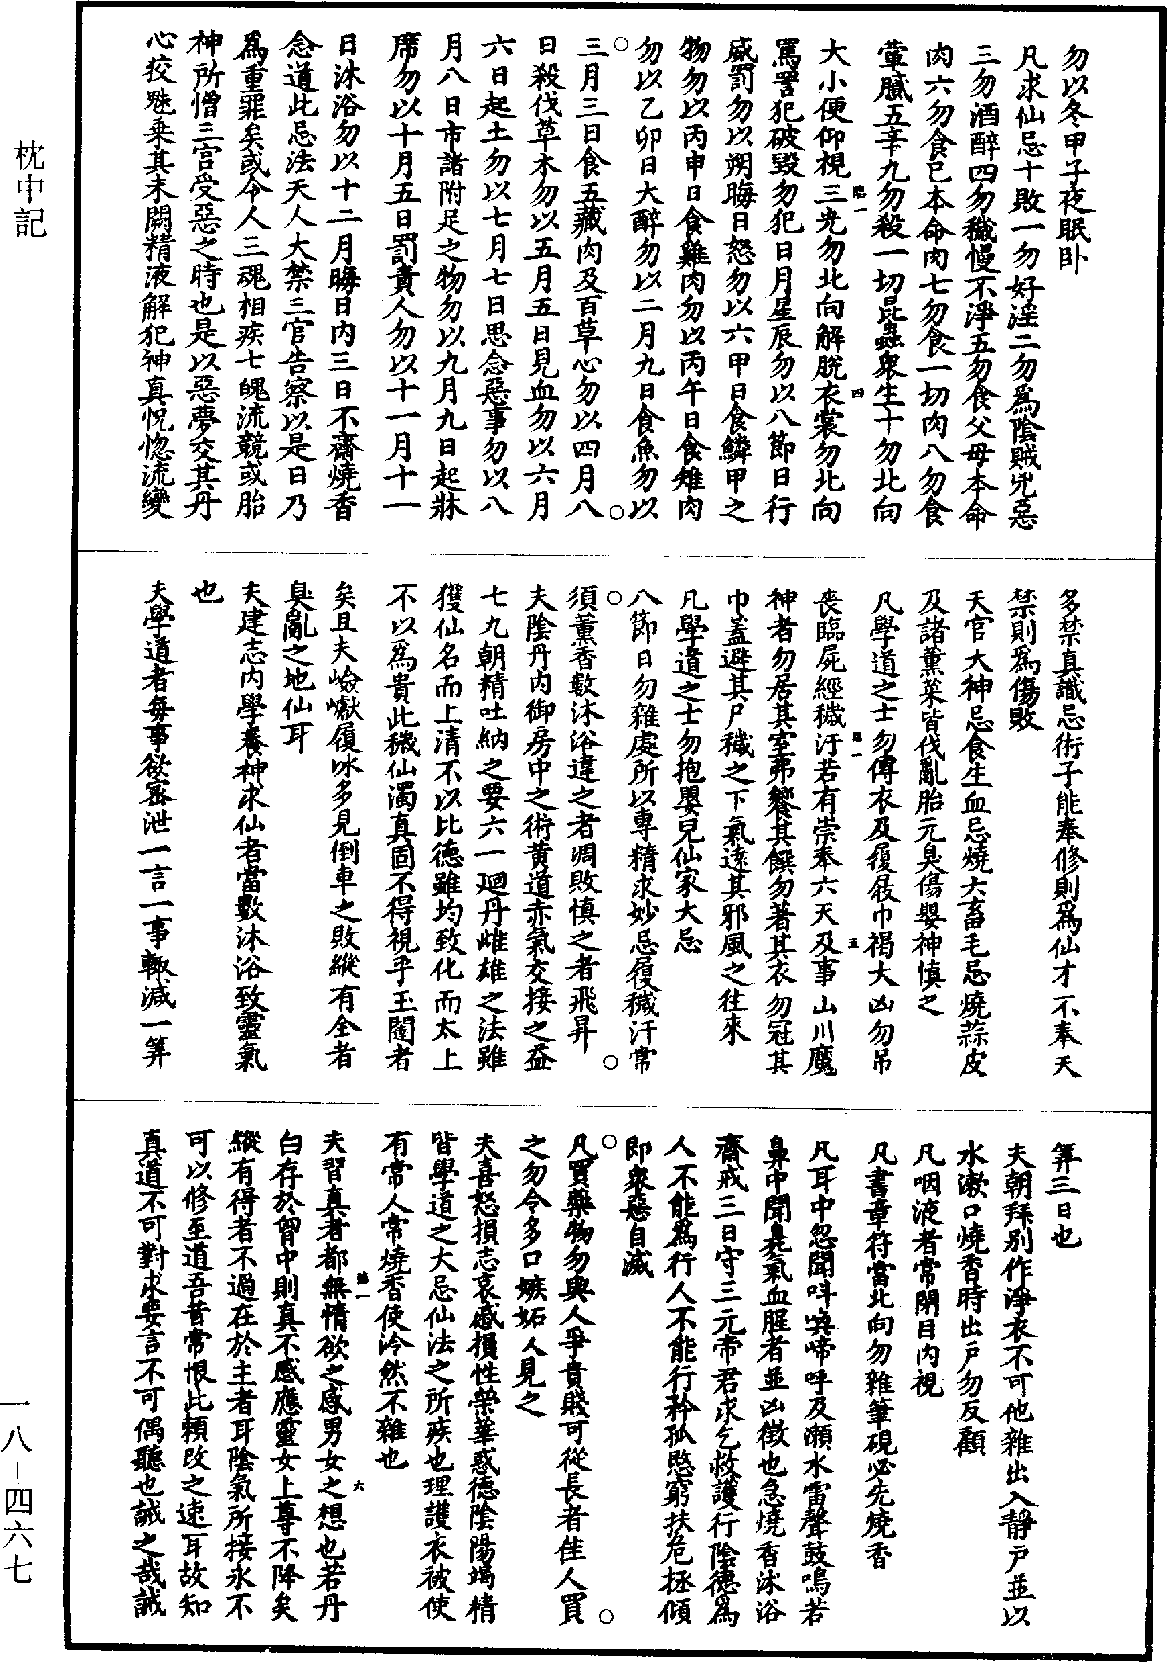 枕中記
勿以冬甲子夜眠卧
凡求仙忌十敗一勿好淫二勿為陰賊兇惡
三勿酒醉四勿穢慢不淨五勿食父母本命
肉六勿食己本命肉七勿食一切肉八勿食
葷膩五辛九勿殺一切昆蟲衆生十勿北向
大小便仰視三光勿北向解脫衣裳勿北向
罵詈犯破毀勿犯日月星辰勿以八節日行
威罰勿以朔晦日怒勿以六甲日食鱗甲之
物勿以丙申日食雞肉勿以丙午日食雉肉
勿以乙卯日大醉勿以二月九日食魚勿以
三月三日食五藏肉及百草心勿以四月八
日殺伐草木勿以五月五日見血勿以六月
六日起土勿以七月七日思念惡事勿以八
月八日市諸附足之物勿以九月九日起牀
席勿以十月五日罰責人勿以十一月十一
日沐浴勿以十二月晦日內三日不齋燒香
念道此忌法天人大禁三官告察以是日乃
為重罪矣或令人三魂相疾七魄流競或胎
神所憎三宮受惡之時也是以惡夢交其丹
心妖魅乘其未闕精液解犯神真怳惚流變
多禁真識忌術子能奉修則為仙才不奉天
禁則為傷敗
天官大神忌食生血忌燒六畜毛忌燒蒜皮
及諸薰菜皆伐亂胎元臭傷嬰神慎之
凡學道之士勿傳衣及履屐巾褐大凶勿吊
喪臨屍經穢汙若有崇奉六天及事山川魔
神者勿居其室弗饗其饌勿著其衣勿冠其
巾蓋避其尸穢之下氣遠其邪風之往來
凡學道之士勿抱嬰兒仙家大忌
八節日勿雜處所以專精求妙忌履穢汙常
須薰香數沐浴違之者凋敗慎之者飛昇
夫陰丹內御房中之術黃道赤氣交接之益
七九朝精吐納之要六一迴丹雌雄之法雖
獲仙名而上清不以比德雖均致化而太上
不以為貴此穢仙濁真固不得視乎玉闥者
矣且夫嶮巘履冰多見倒車之敗縱有全者
臭亂之地仙耳
夫建志內學養神求仙者當數沐浴致靈氣
也
夫學道者每事欲密泄一言一事輒減一筭
筭三日也
夫朝拜別作淨衣不可他雜出入靜戶並以
水漱口燒香時出戶勿反顧
凡咽液者常閉目內視
凡書章符當北向勿雜筆硯必先燒香
凡耳中忽聞呌喚啼呼及瀨水雷聲鼓鳴若
鼻中聞臭氣血腥者並凶徵也急燒香沐浴
齋戒三日守三元帝君求乞救護行陰德為
人不能為行人不能行矜孤愍窮扶危拯傾
即衆惡自滅
凡買藥物勿與人爭貴賤可從長者佳人買
之勿令多口嫉妬人見之
夫喜怒損志哀慼損性榮華惑德陰陽竭精
皆學道之大忌仙法之所疾也理護衣被使
有常人常燒香使泠然不雜也
夫習真者都無情欲之感男女之想也若丹
白存於胷中則真不感應靈女上尊不降矣
縱有得者不過在於主者耳陰氣所接永不
可以修至道吾昔常恨此賴改之速耳故知
真道不可對求要言不可偶聽也誡之哉誡
一八－四六七